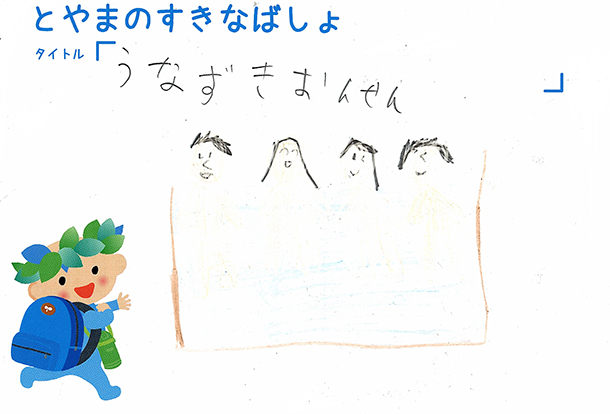 とやまのすきなばしょ
タイトル「うなずきおんせん」